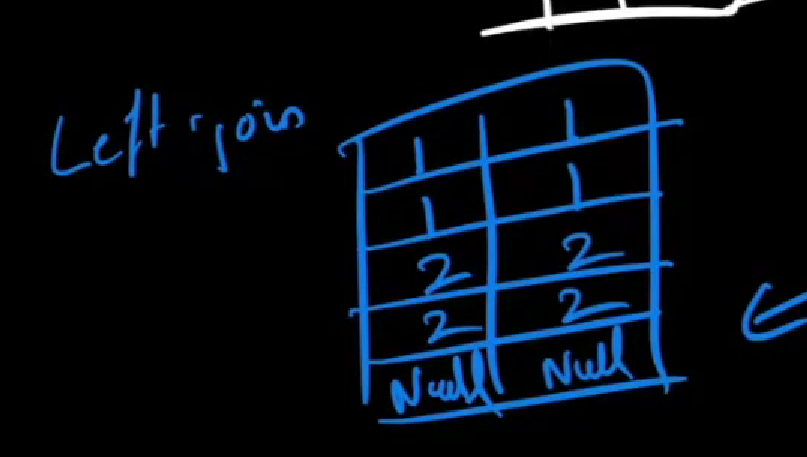 Left join
1 1
1 1
2 2
2 2
Null Null